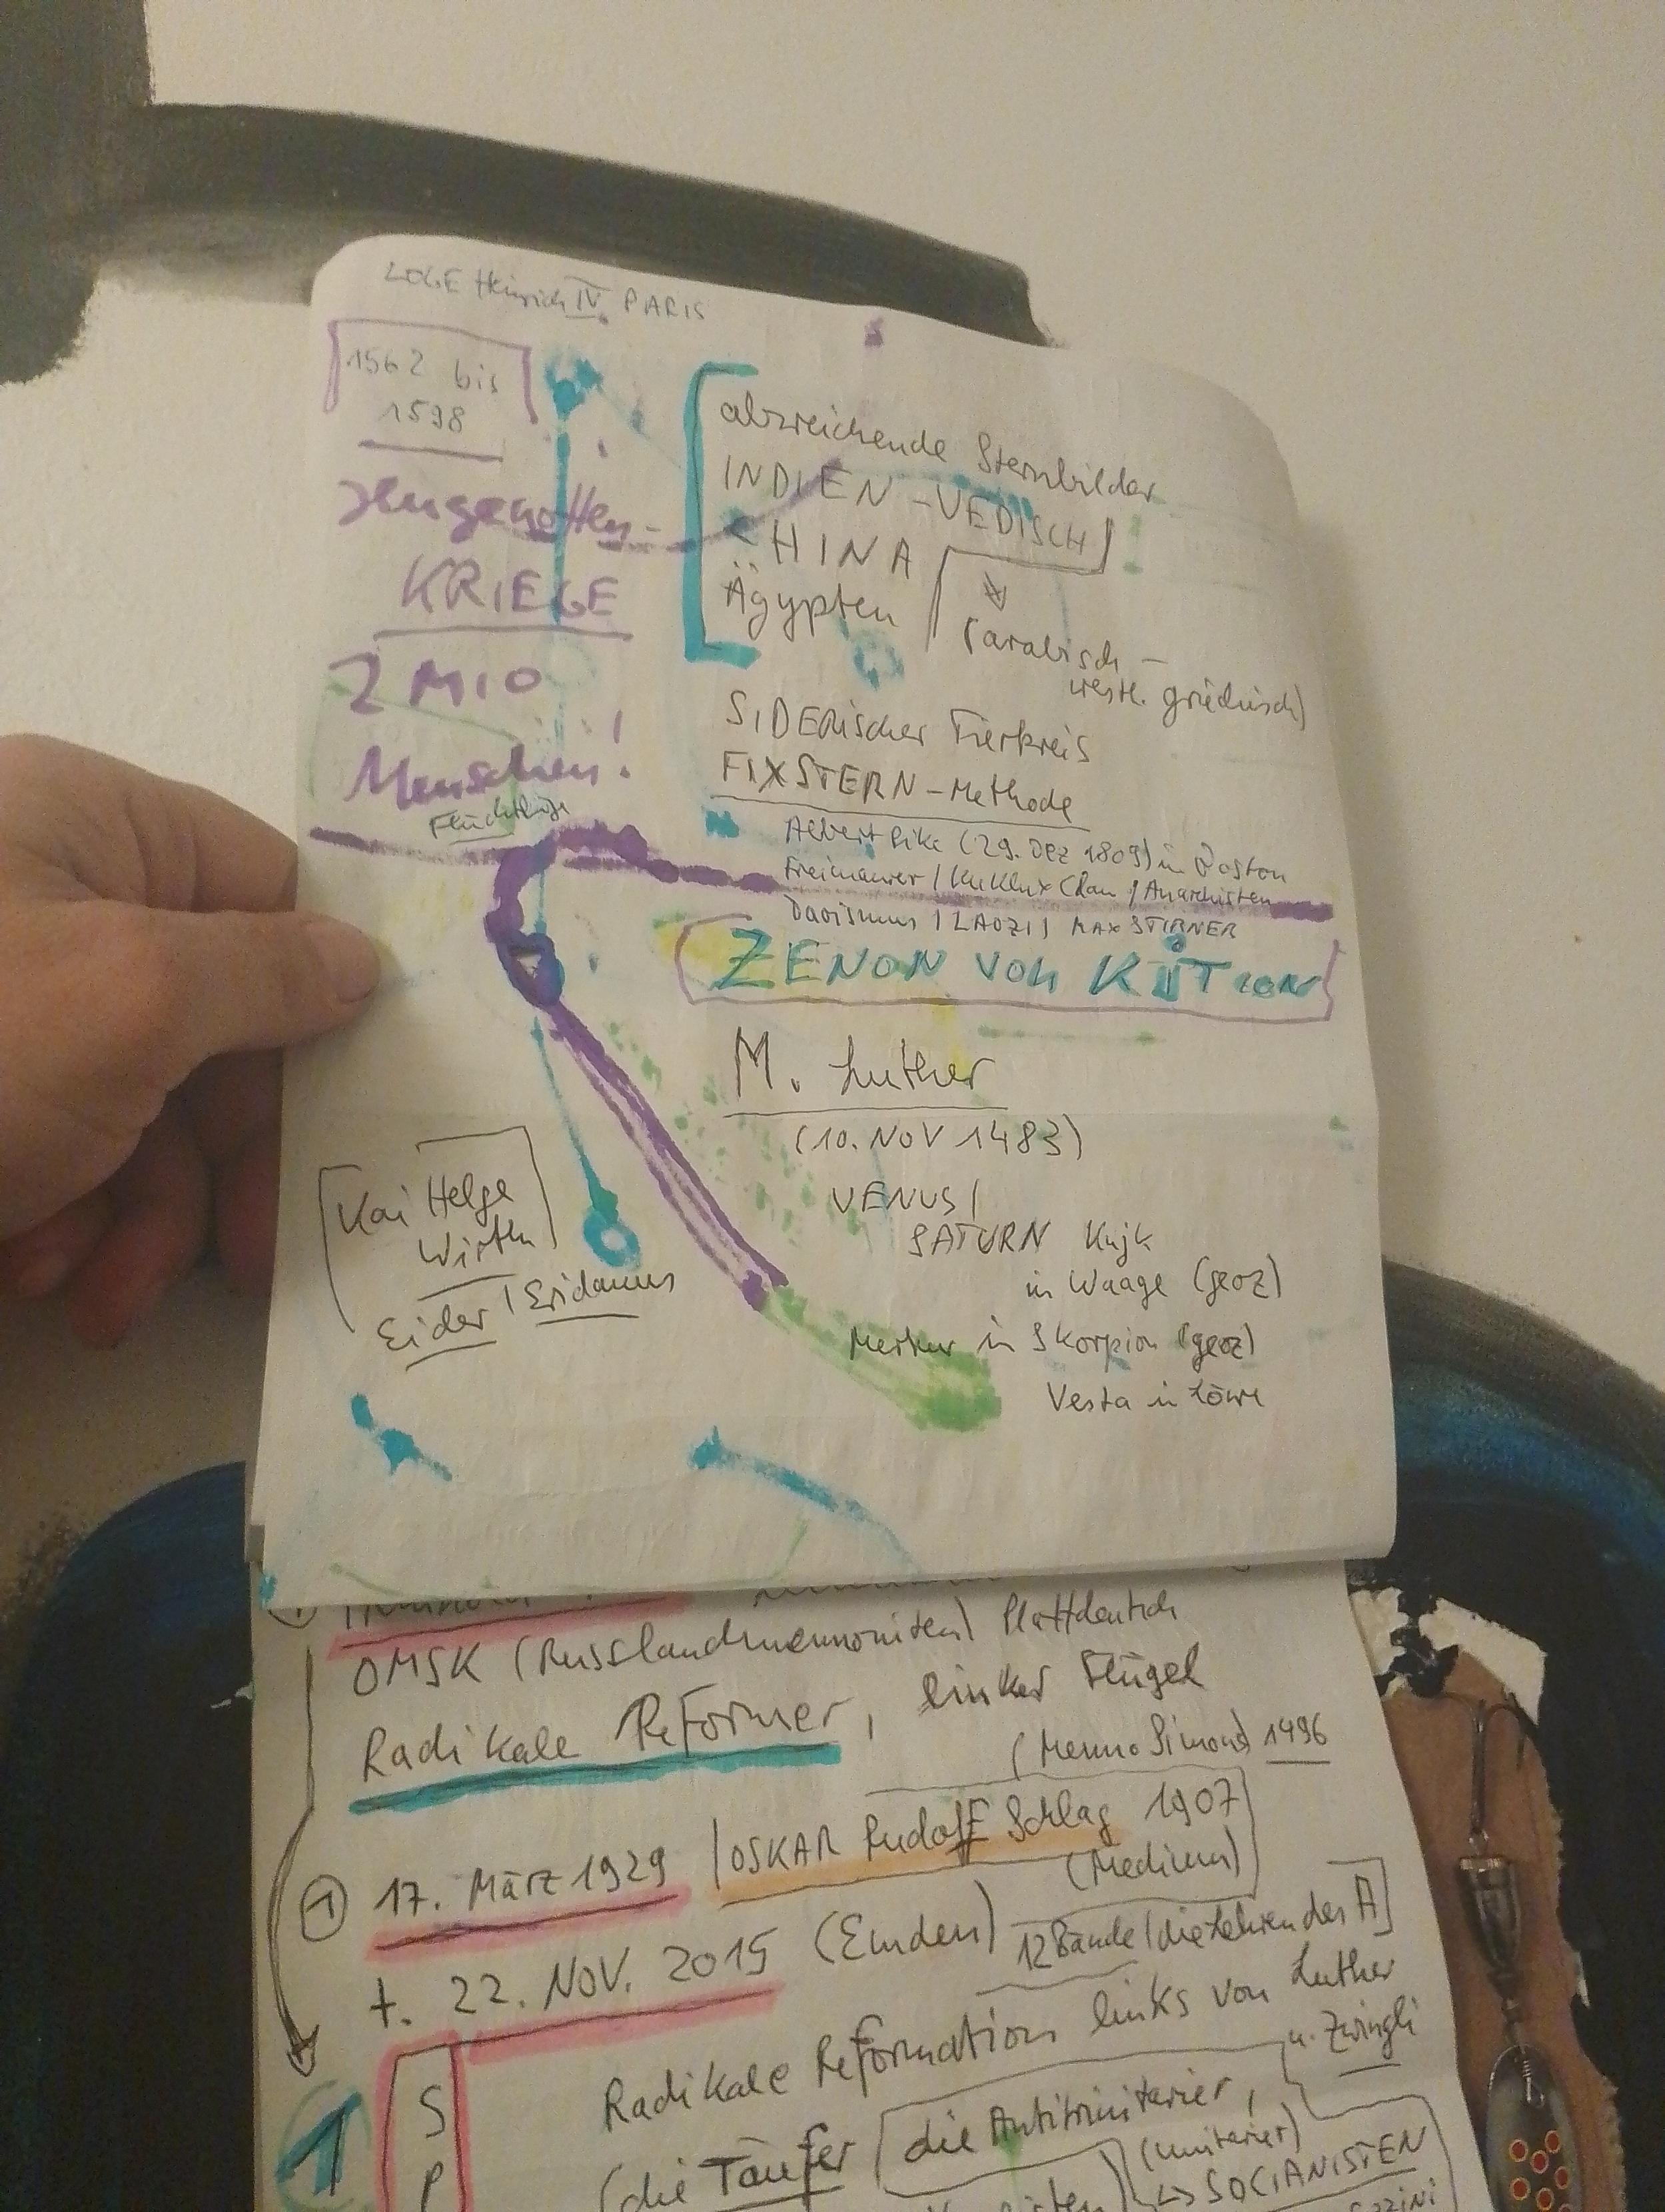 LOGE Heinrich IV. PARIS
1562 bis
1598
Hugenotten-
KRIEGE
2 MIO
Menschen!
Flüchtlinge
abweichende Sternbilder
INDIEN - VEDISCH
CHINA
Ägypten
(arabisch -
westl. griechisch)
SIDERischer Tierkreis
FIXSTERN-Methode
Albert Pike (29. Dez 1809) in Boston
Freimaurer / KuKlux Clan / Anarchisten
Daoismus | LAOZI | MAX STIRNER
ZENON von KiTION
M. Luther
(10. NOV 1483)
VENUS /
SATURN Knjk
in Waage (geoz)
Merkur in Skorpion (geoz)
Vesta in Löwe
Kai Helge
Wirth
Eider / Eridanus
OMSK (Russlandmennoniten) Plattdeutsch
Radikale Reformer, linker Flügel
(Menno Simons) 1496
① 17. März 1929 OSKAR Rudolf Schlag 1907
(Medium)
+. 22. NOV. 2015 (Emden) 12 Bände / die Lehren des A
Radikale Reformation links von Luther
u. Zwingli
1 S
P
(die Täufer (die Antitrinitarier,
(Unitarier)
↳ SOCIANISTEN